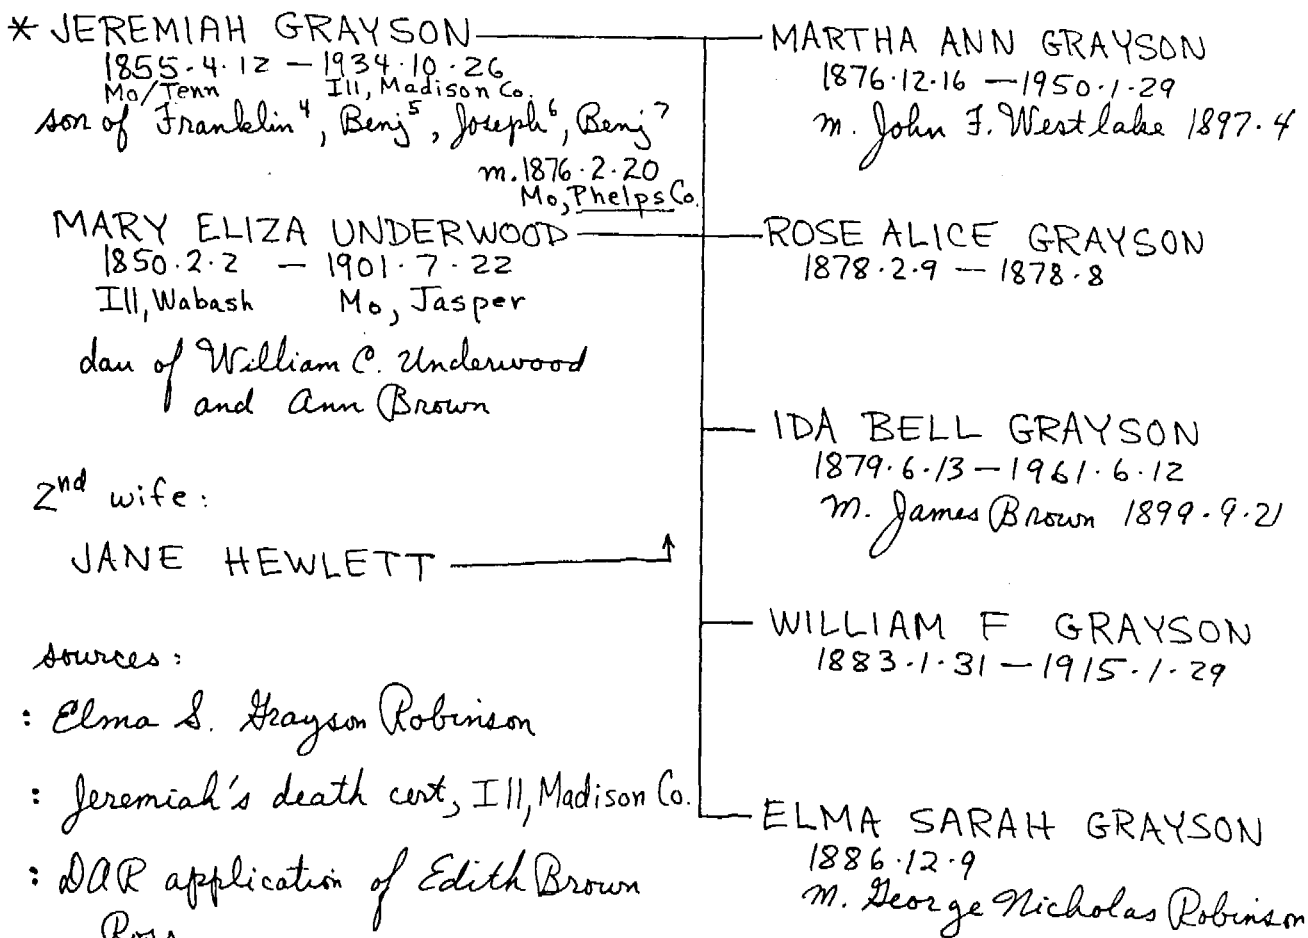 * JEREMIAH GRAYSON
1855·4·12 – 1934·10·26
Mo/Tenn Ill, Madison Co.
son of Franklin⁴, Benj⁵, Joseph⁶, Benj⁷
m. 1876·2·20
Mo, Phelps Co.
MARY ELIZA UNDERWOOD
1850·2·2 – 1901·7·22
Ill, Wabash Mo, Jasper
dau of William C. Underwood
and Ann Brown
2nd wife:
JANE HEWLETT
sources:
: Elma S. Grayson Robinson
: Jeremiah's death cert, Ill, Madison Co.
: DAR application of Edith Brown
Ross
MARTHA ANN GRAYSON
1876·12·16 – 1950·1·29
m. John F. Westlake 1897·4
ROSE ALICE GRAYSON
1878·2·9 – 1878·8
IDA BELL GRAYSON
1879·6·13 – 1961·6·12
m. James Brown 1899·9·21
WILLIAM F GRAYSON
1883·1·31 – 1915·1·29
ELMA SARAH GRAYSON
1886·12·9
m. George Nicholas Robinson